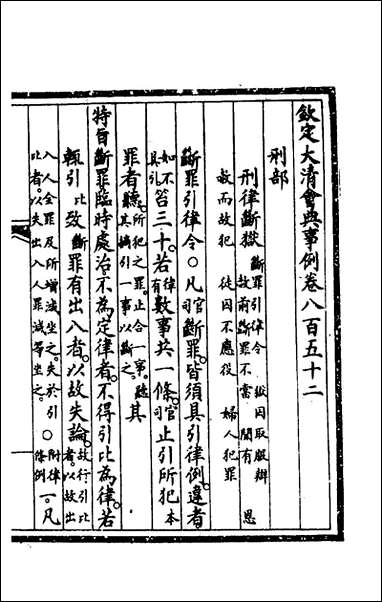 欽定大清會典事例卷八百五十二
刑部
刑律斷獄 斷罪引律令 獄囚取服辯
故前斷罪不當 聞有 恩
故而故犯 徒囚不應役 婦人犯罪
斷罪引律令○凡官司斷罪皆須具引律例違者
如不具引笞三十若律有數事共一條官司止引所犯本
罪者聽所犯之罪止合一事聽其摘引一事以斷之其
特旨斷罪臨時處治不為定律者不得引比為律若
輒引比致斷罪有出入者以故失論故行引比者以故出
入人全罪及所增減坐之失於引
比者以失出入人罪減等坐之○附律條例一凡